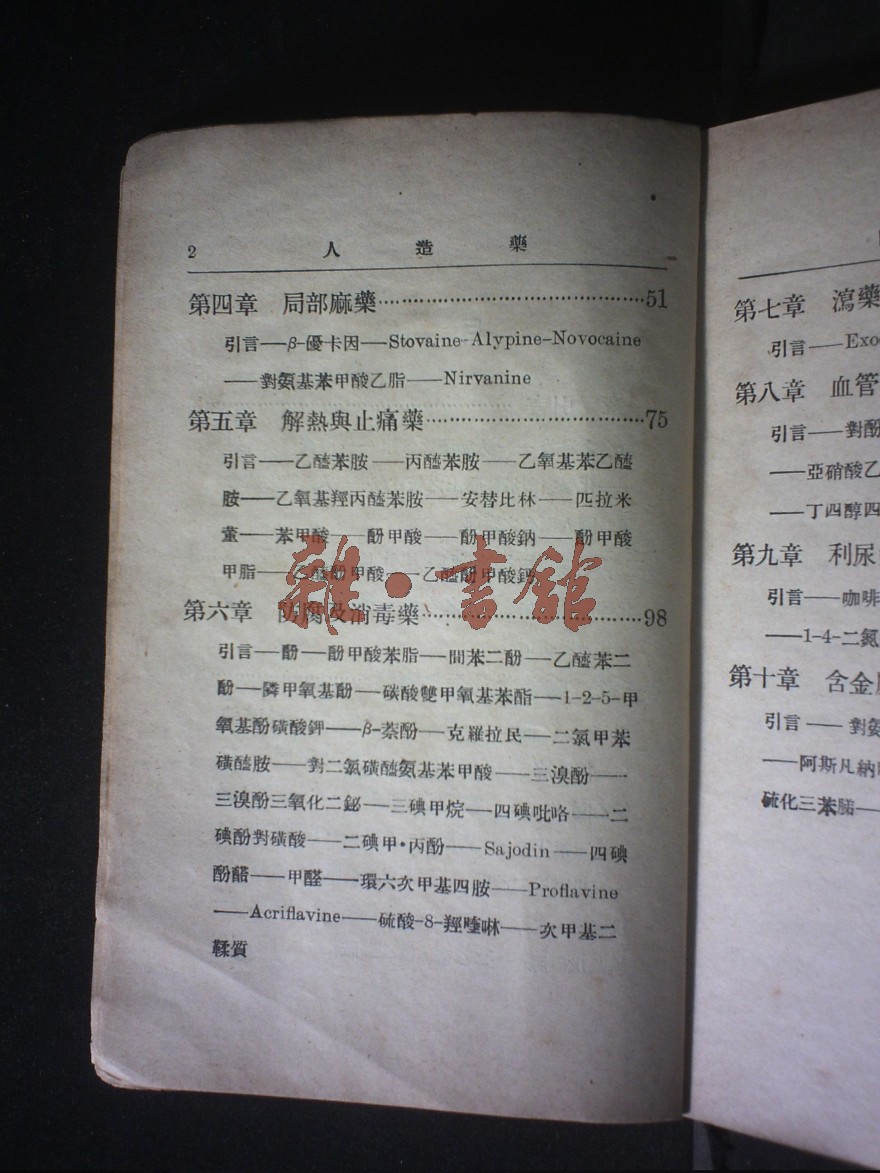 2 人造藥
第四章 局部麻藥……51
引言——β-優卡因——Stovaine-Alypine-Novocaine
——對氨基苯甲酸乙脂——Nirvanine
第五章 解熱與止痛藥……75
引言——乙醯苯胺——丙醯苯胺——乙氧基苯乙醯
胺——乙氧基羥丙醯苯胺——安替比林——匹拉米
董——苯甲酸——酚甲酸——酚甲酸鈉——酚甲酸
甲脂——乙醯酚甲酸——乙醯酚甲酸鈣
第六章 防腐及消毒藥……98
引言——酚——酚甲酸苯脂——間苯二酚——乙醯苯二
酚——隣甲氧基酚——碳酸雙甲氧基苯酯——1-2-5-甲
氧基酚磺酸鉀——β-萘酚——克羅拉民——二氯甲苯
磺醯胺——對二氯磺醯氨基苯甲酸——三溴酚——
三溴酚三氧化二鉍——三碘甲烷——四碘吡咯——二
碘酚對磺酸——二碘甲·丙酚——Sajodin——四碘
酚——甲醛——環六次甲基四胺——Proflavine
——Acriflavine——硫酸-8-羥喹啉——次甲基二
鞣質
雜·書館
第七章 瀉藥
引言——Exo
第八章 血管
引言——對酚
——亞硝酸乙
——丁四醇四
第九章 利尿
引言——咖啡
——1-4-二氮
第十章 含金
引言——對氨
——阿斯凡納
硫化三苯